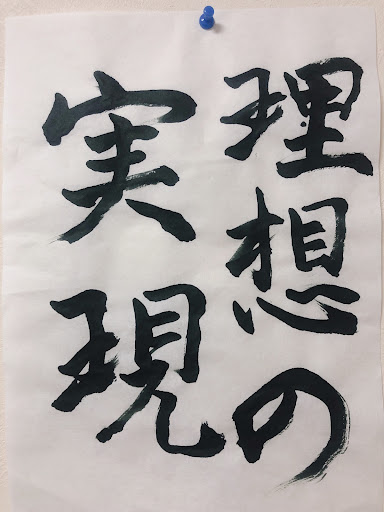 理想の
実現